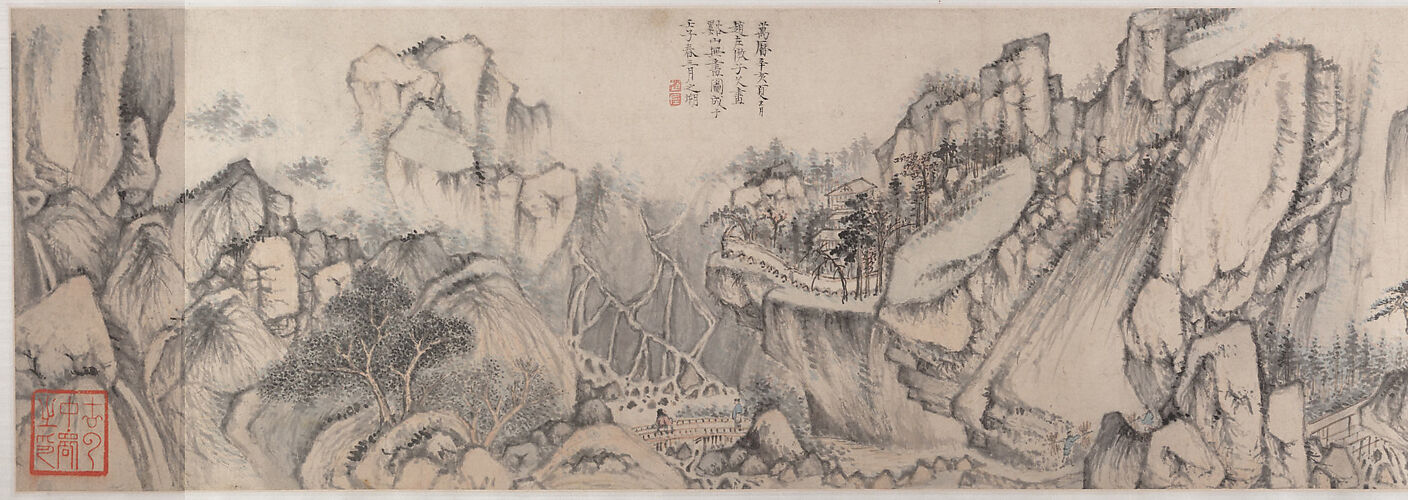 萬曆辛亥夏五月
趙左倣子久畫
谿山無盡圖成于
壬子春三月之朔